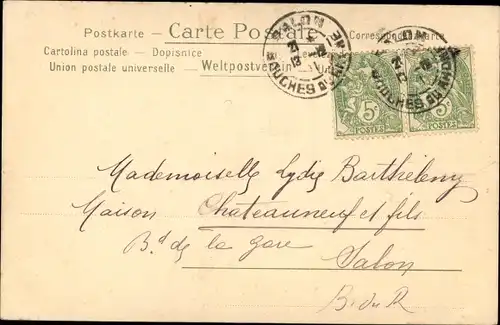 Postkarte - Carte Postale - Correspondenzkarte
Cartolina postale - Dopisnice
Union postale universelle - Weltpostverein
SALON
BOUCHES DU RHONE
5c 5c
POSTES POSTES
Mademoiselle Lydie Barthélemy
Maison Chateauneuf et fils
Bd de la gare
Salon
B. du R